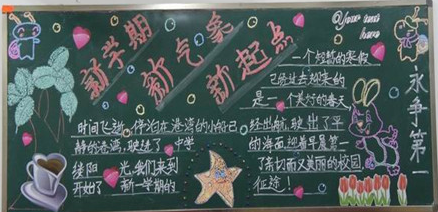 新学期
新气象
新起点
Your text
here
一个短暂的寒假
已经过去迎来的
是一个美好的春天
时间飞逝，停泊在港湾的小船已
静的港湾，驶进了
缕阳 光，我们来到
开始了 新一学期的
经出航，驶出了平
的海面迎着早晨第一
了亲切而又美丽的校园
征途！
永争第一